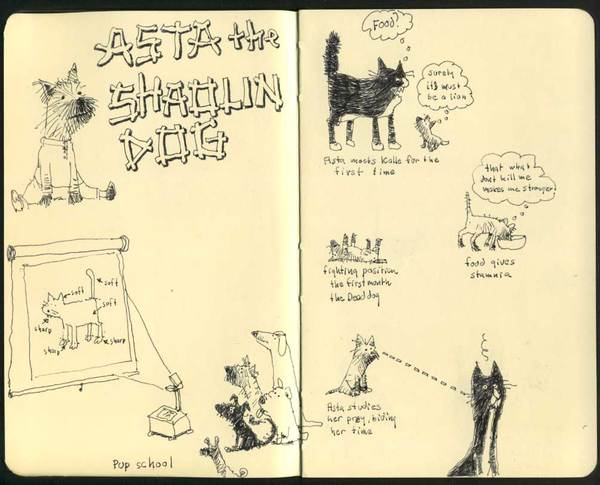 ASTA the
SHAOLIN
DOG
soft
soft
soft
sharp
sharp
sharp
Pup school
Food?
surely
it's must
be a lion
Asta meets Kalle for the
first time
that what
dont kill me
makes me stronger
food gives
stamnia
fighting position
the first month
the Dead dog
Asta studies
her prey, biding
her time